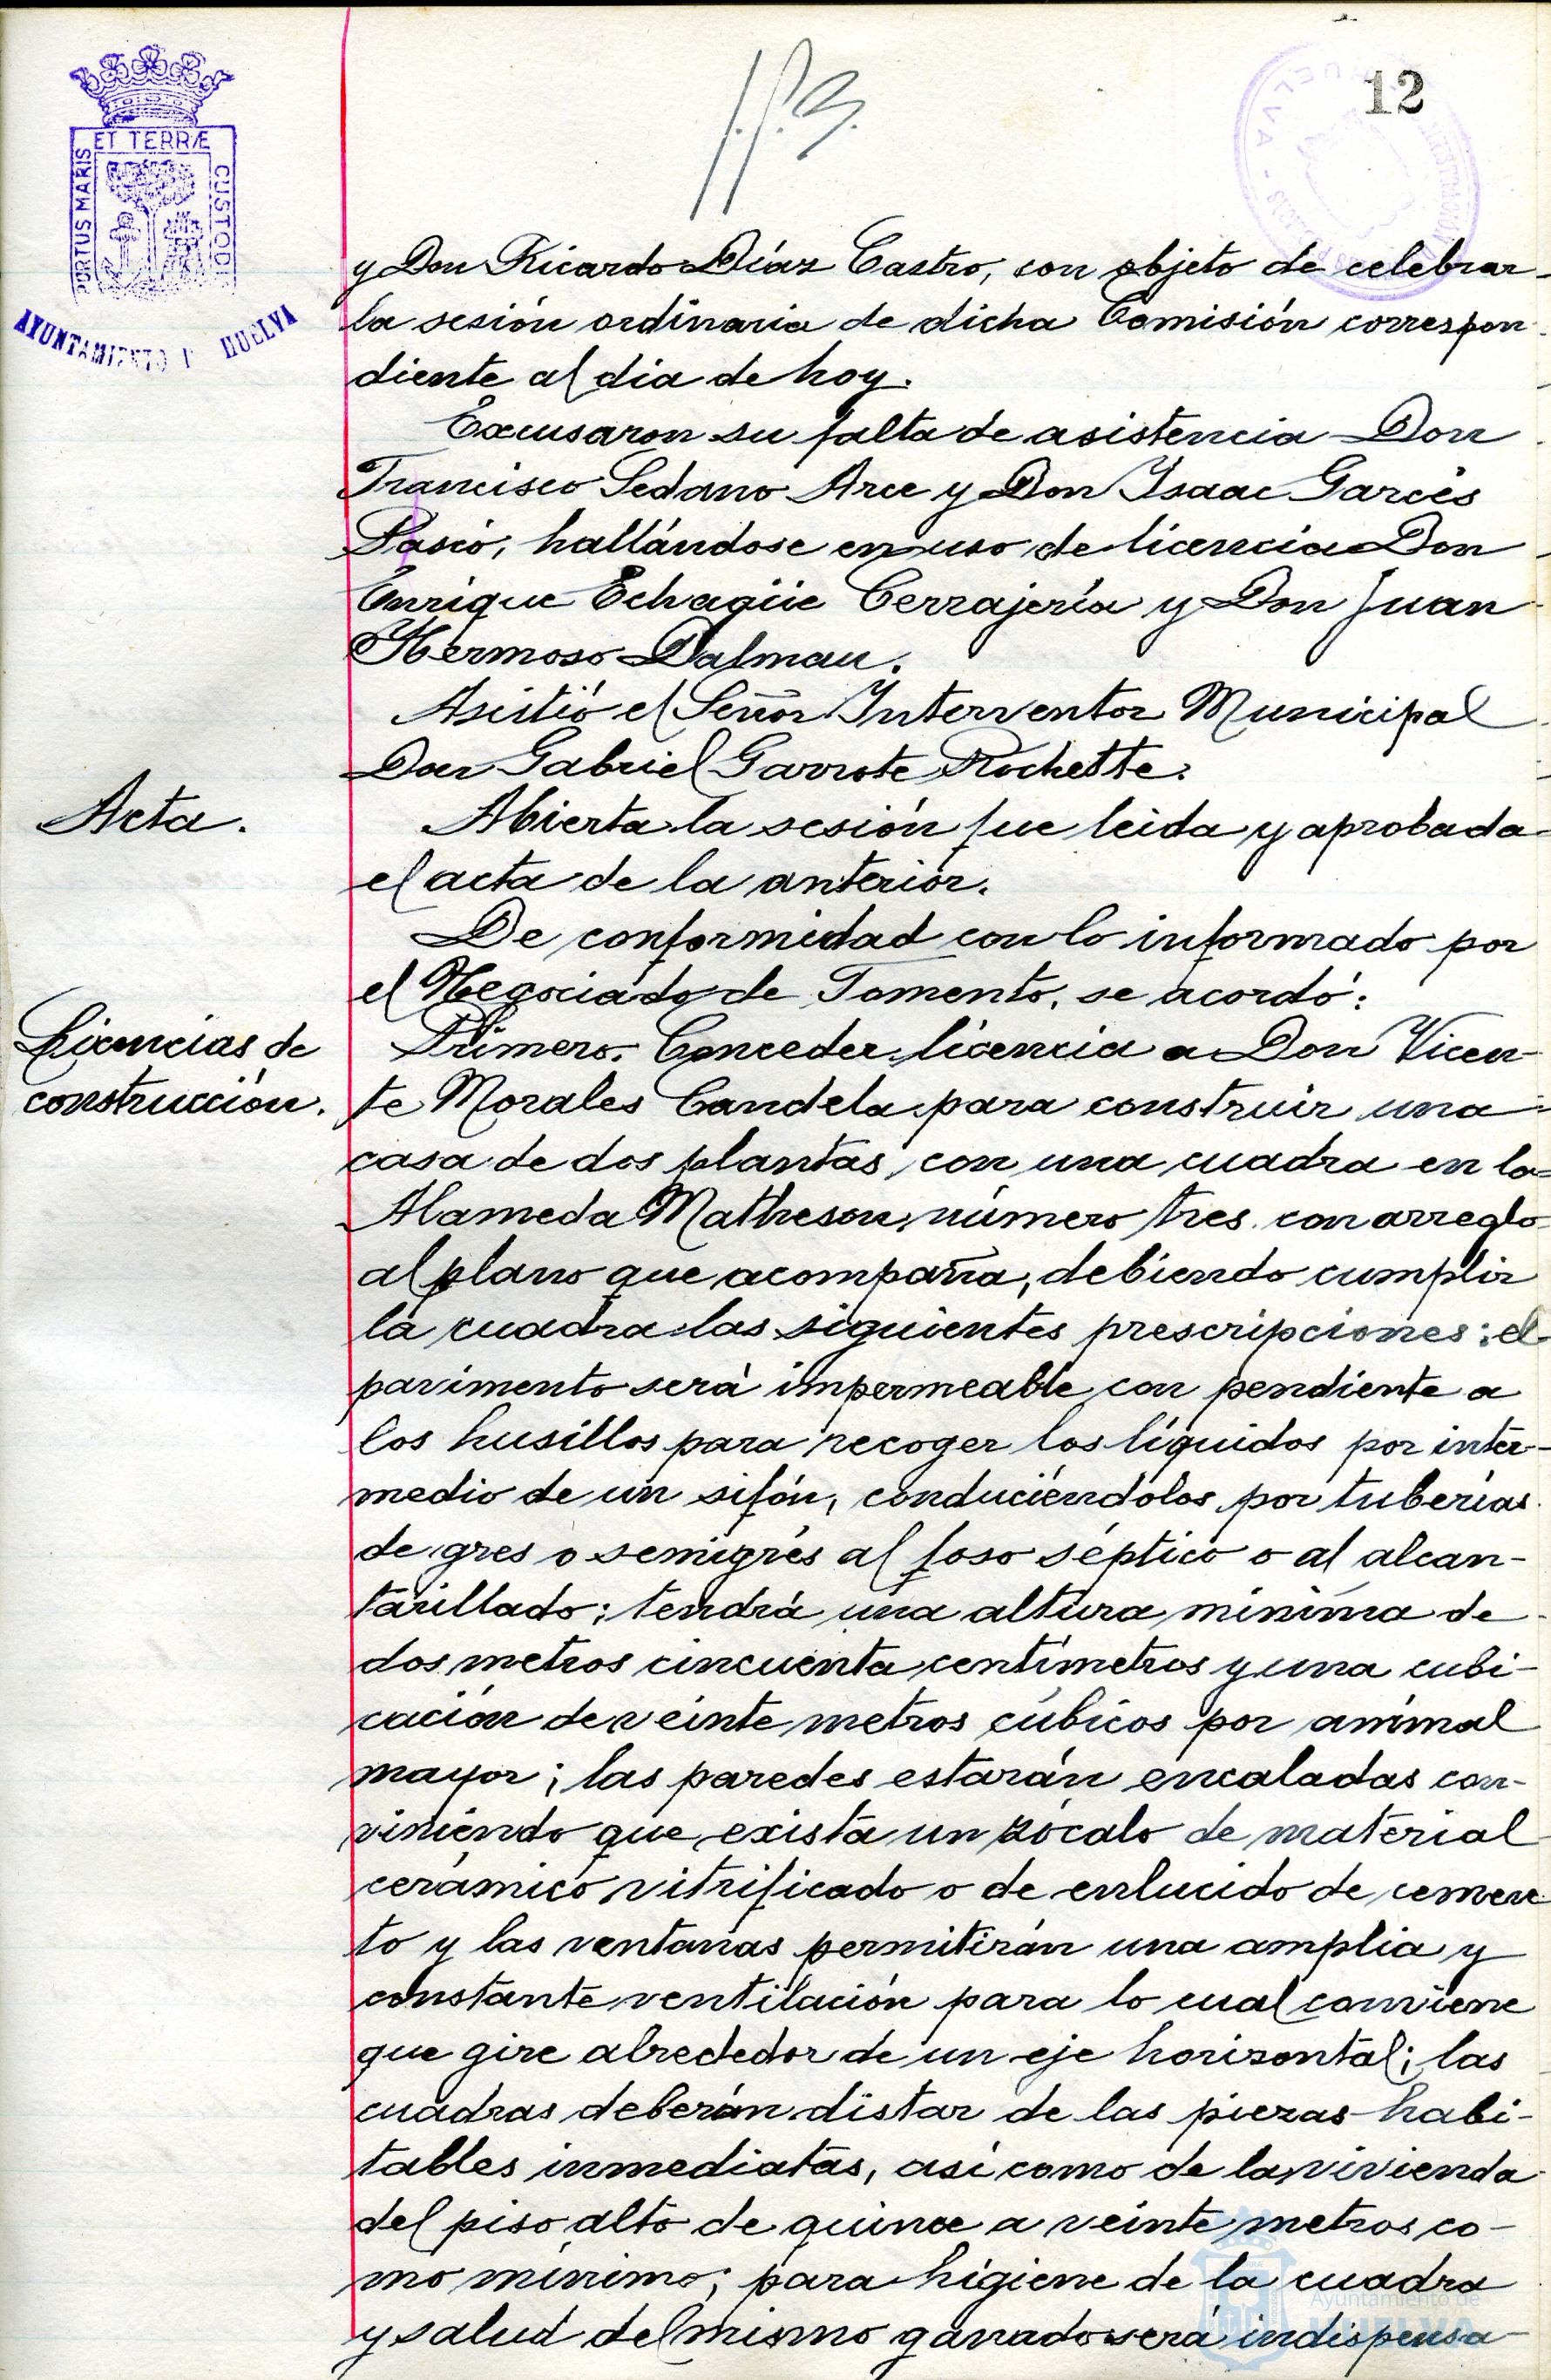 12
PORTUS MARIS
ET TERRÆ
CUSTODI
AYUNTAMIENTO D HUELVA
y Don Ricardo Díaz Castro, con objeto de celebrar
la sesión ordinaria de dicha Comisión correspon
diente al dia de hoy.
Excusaron su falta de asistencia Don
Francisco Sedano Arce y Don Isaac Garcés
hallándose en uso de licencia Don
Enrique Echagüe Cerrajería y Don Juan
Hermoso Dalmau.
Asistió el Señor Interventor Municipal
Don Gabriel Garrote Rochette.
Acta.
Abierta la sesión fue leida y aprobada
el acta de la anterior.
De conformidad con lo informado por
el Negociado de Fomento, se acordó:
Licencias de
construcción.
Primero. Conceder licencia a Don Vicen
te Morales Candela para construir una
casa de dos plantas, con una cuadra en la
Alameda Matheson, número tres, con arreglo
al plano que acompaña, debiendo cumplir
la cuadra las siguientes prescripciones: el
pavimento será impermeable, con pendiente a
los husillos para recoger los líquidos por inter-
medio de un sifón, conduciéndolos por tuberías
de gres o semigrés al foso séptico o al alcan-
tarillado; tendrá una altura mínima de
dos metros cincuenta centímetros y una cubi-
cación de veinte metros cúbicos por animal
mayor; las paredes estarán encaladas con-
viniendo que exista un zócalo de material
cerámico vitrificado o de enlucido de cemen
to y las ventanas permitirán una amplia y
constante ventilación para lo cual conviene
que gire alrededor de un eje horizontal; las
cuadras deberán distar de las piezas habi-
tables inmediatas, así como de la vivienda
del piso alto de quince a veinte metros co-
mo mínimo; para higiene de la cuadra
y salud del mismo ganado será indispensa
Ayuntamiento de
HUELVA